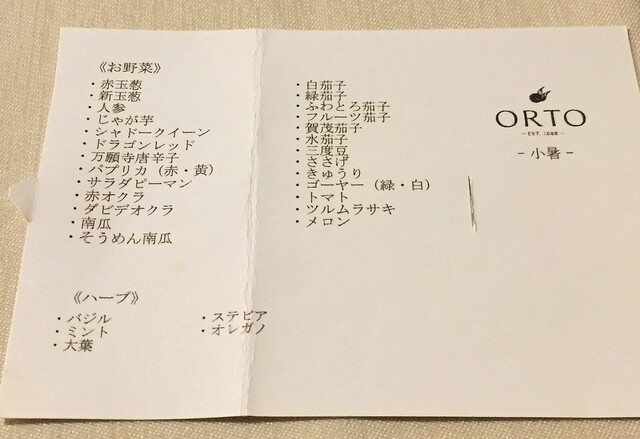 《お野菜》
・赤玉葱
・新玉葱
・人参
・じゃが芋
・シャドークイーン
・ドラゴンレッド
・万願寺唐辛子
・パプリカ（赤・黄）
・サラダピーマン
・赤オクラ
・ダビデオクラ
・南瓜
・そうめん南瓜
・白茄子
・緑茄子
・ふわとろ茄子
・フルーツ茄子
・賀茂茄子
・水茄子
・三度豆
・ささげ
・きゅうり
・ゴーヤー（緑・白）
・トマト
・ツルムラサキ
・メロン
《ハーブ》
・バジル
・ミント
・大葉
・ステビア
・オレガノ
ORTO
EST.
- 小暑 -